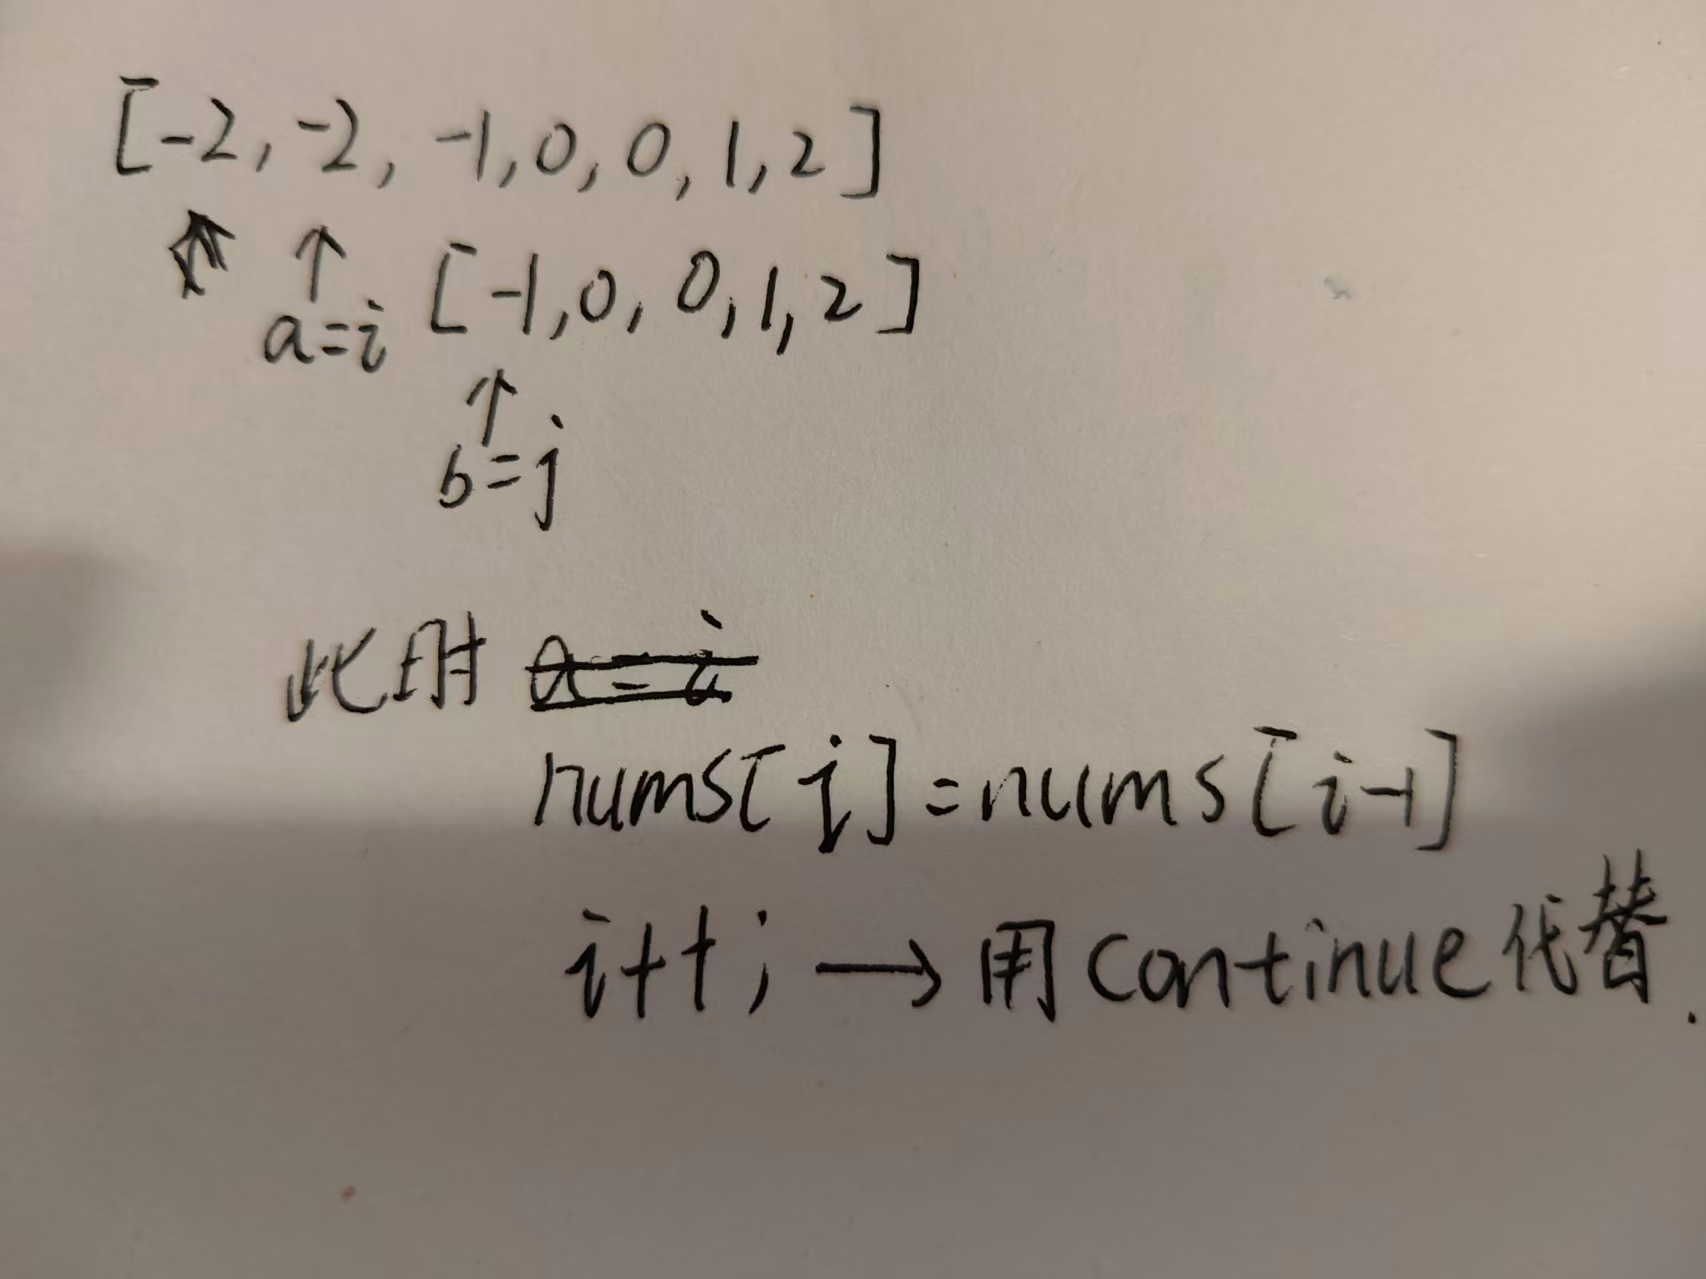 [-2, -2, -1, 0, 0, 1, 2]
↑ ↑ [-1, 0, 0, 1, 2]
a=i
↑
b=j
此时
nums[i]=nums[i-1]
i++; → 用continue代替.